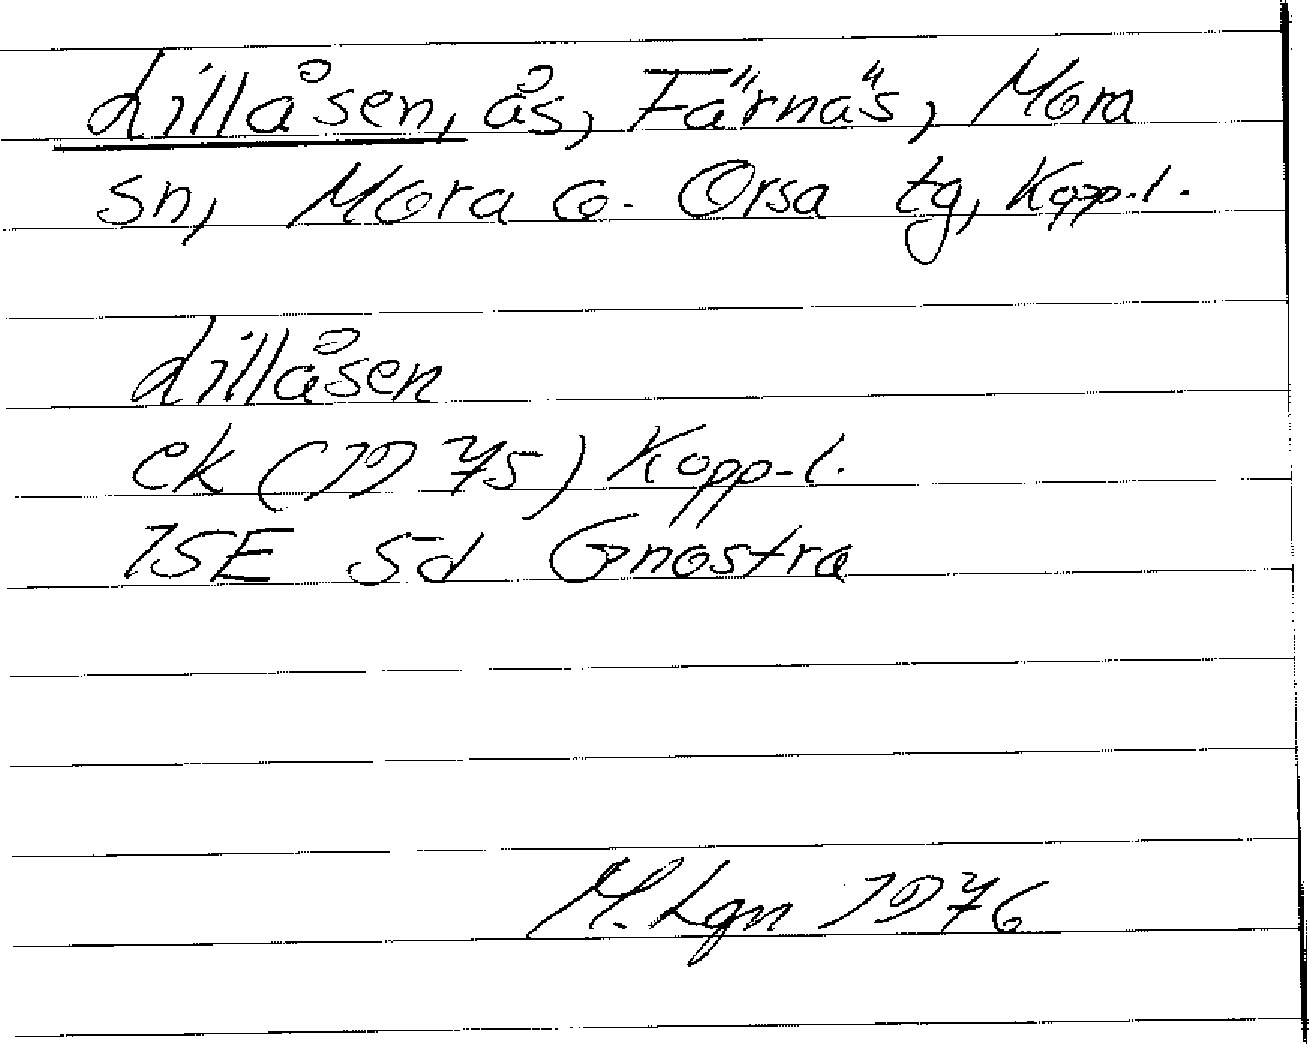 Lillåsen, ås, Färnäs, Mora
sn, Mora o. Orsa tg, Kopp.l.
Lillåsen
ek (1975) Kopp.l.
15E 5d Gnostra
M. Lgn 1976